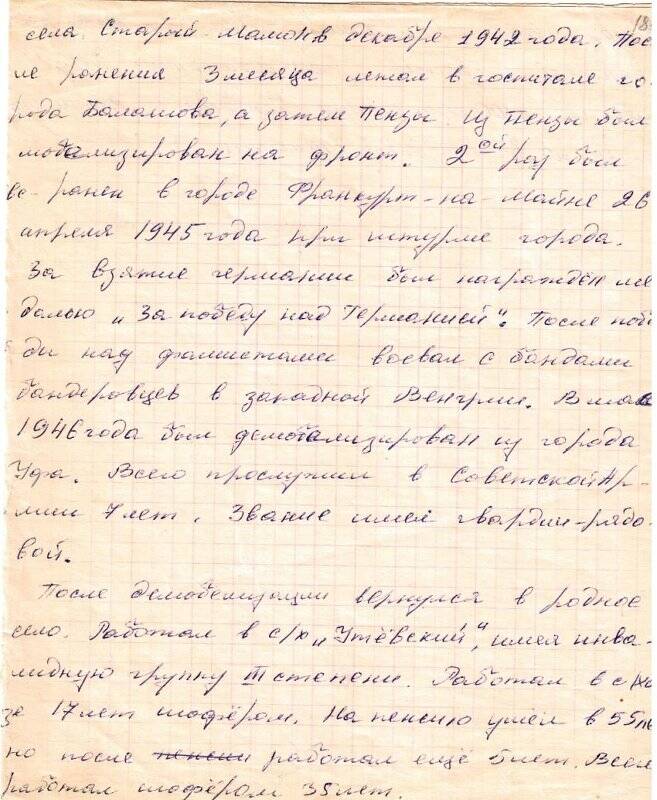 18
села Старый Мамон в декабре 1942 года. Пос
ле ранения 3 месяца лежал в госпитале го-
рода Балашова, а затем Пензы. Из Пензы был
мобализирован на фронт. 2ой раз был
ранен в городе Франкурт-на-Майне 26
апреля 1945 года при штурме города.
За взятие германии был награжден ме
далью „За победу над Германией". После поб
ды над фашистами воевал с бандами
бандеровцев в западной Венгрии. В мае
1946 года был демобализирован из города
Уфа. Всего прослужил в Советской Ар-
мии 7 лет. Звание имел гвардии-рядо-
вой.
После демобелизации вернулся в родное
село. Работал в с/х „Утёвский", имея инва-
лидную группу III степени. Работал в с/хо
зе 17 лет шофёром. На пенсию ушёл в 55 ле
но после пенсии работал ещё 5 лет. Всего
работал шофёром 35 лет.